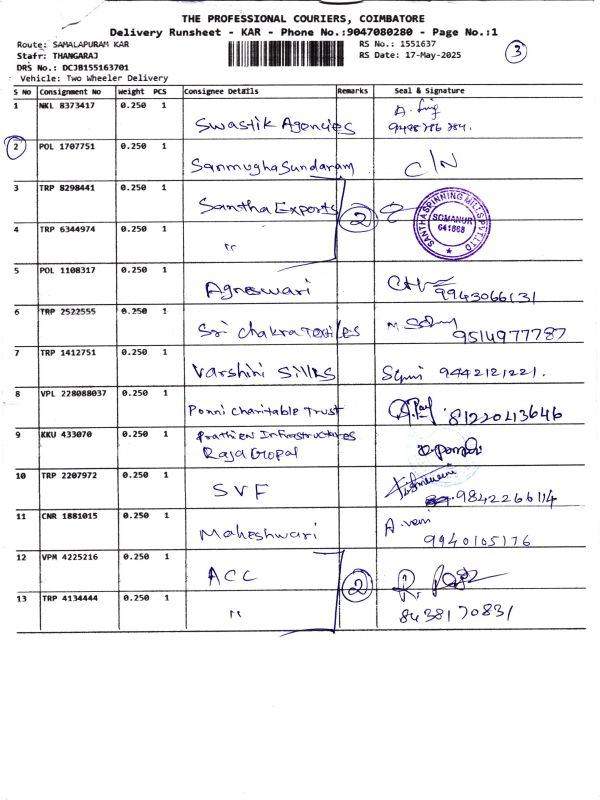 THE PROFESSIONAL COURIERS, COIMBATORE
Delivery Runsheet - KAR - Phone No.:9047080280 - Page No.:1
Route: SAMALAPURAM KAR RS No.: 1551637 3
Stafr: THANGARAJ RS Date: 17-May-2025
DRS No.: DCJB155163701
Vehicle: Two Wheeler Delivery
S No Consignment No Weight PCS Consignee Details Remarks Seal & Signature
1 NKL 8373417 0.250 1 Swastik Agencies
2 POL 1707751 0.250 1 Sanmugha Sundaram C/N
3 TRP 8298441 0.250 1 Santha Exports 2
SANTHA SPINNING MILLS PVT.LTD SOMANUR 641668
4 TRP 6344974 0.250 1 "
5 POL 1108317 0.250 1 Agneswari 9943066131
6 TRP 2522555 0.250 1 Sri Chakra Textiles 9514977787
7 TRP 1412751 0.250 1 Varshini Silks 9442121221.
8 VPL 228088037 0.250 1 Ponni Charitable Trust 81220413646
9 KKU 433070 0.250 1 Infrastructures
Raja Gopal
10 TRP 2207972 0.250 1 SVF 9842266114
11 CNR 1881015 0.250 1 Maheshwari A. vani
9940105176
12 VPM 4225216 0.250 1 ACC 2
13 TRP 4134444 0.250 1 " 8438170831